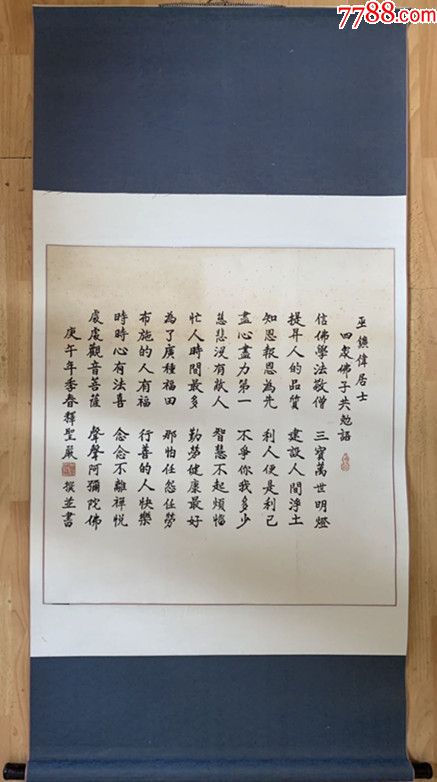 7788.com
巫德偉居士
四眾佛子共勉語
信佛學法敬僧 三寶萬世明燈
提昇人的品質 建設人間淨土
知恩報恩為先 利人便是利己
盡心盡力第一 不爭你我多少
慈悲沒有敵人 智慧不起煩惱
忙人時間最多 勤勞健康最好
為了廣種福田 那怕任怨任勞
布施的人有福 行善的人快樂
時時心有法喜 念念不離禪悅
處處觀音菩薩 聲聲阿彌陀佛
庚午年季春釋聖嚴 撰並書